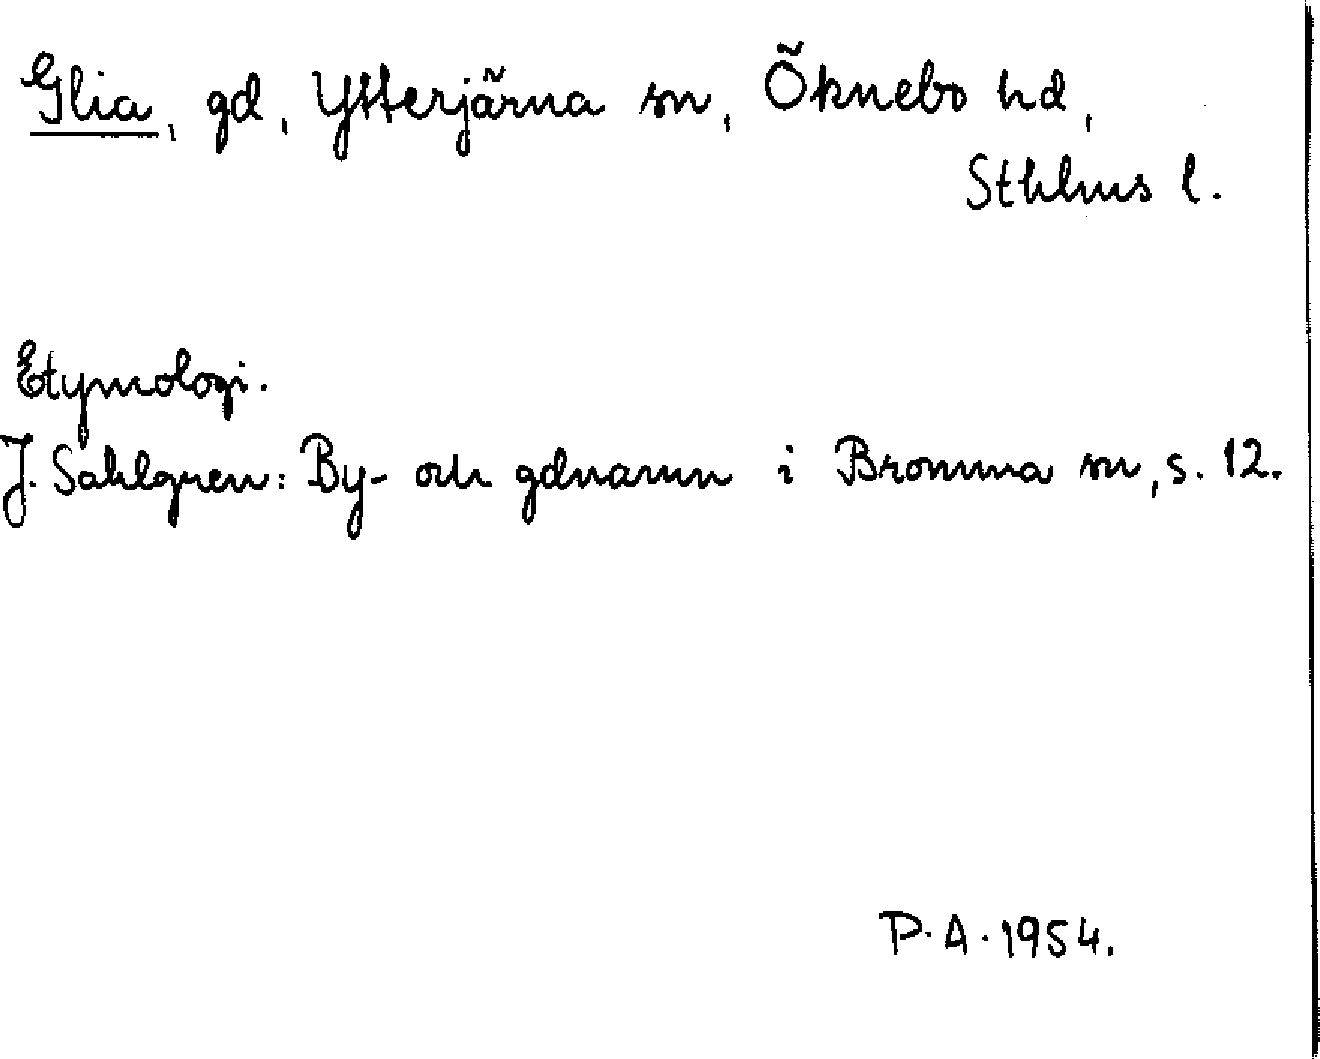 Glia, gd, Ytterjärna sn, Öknebo hd,
Sthlms l.
Etymologi.
J. Sahlgren: By- och gdnamn i Bromma sn, s. 12.
P. A. 1954.